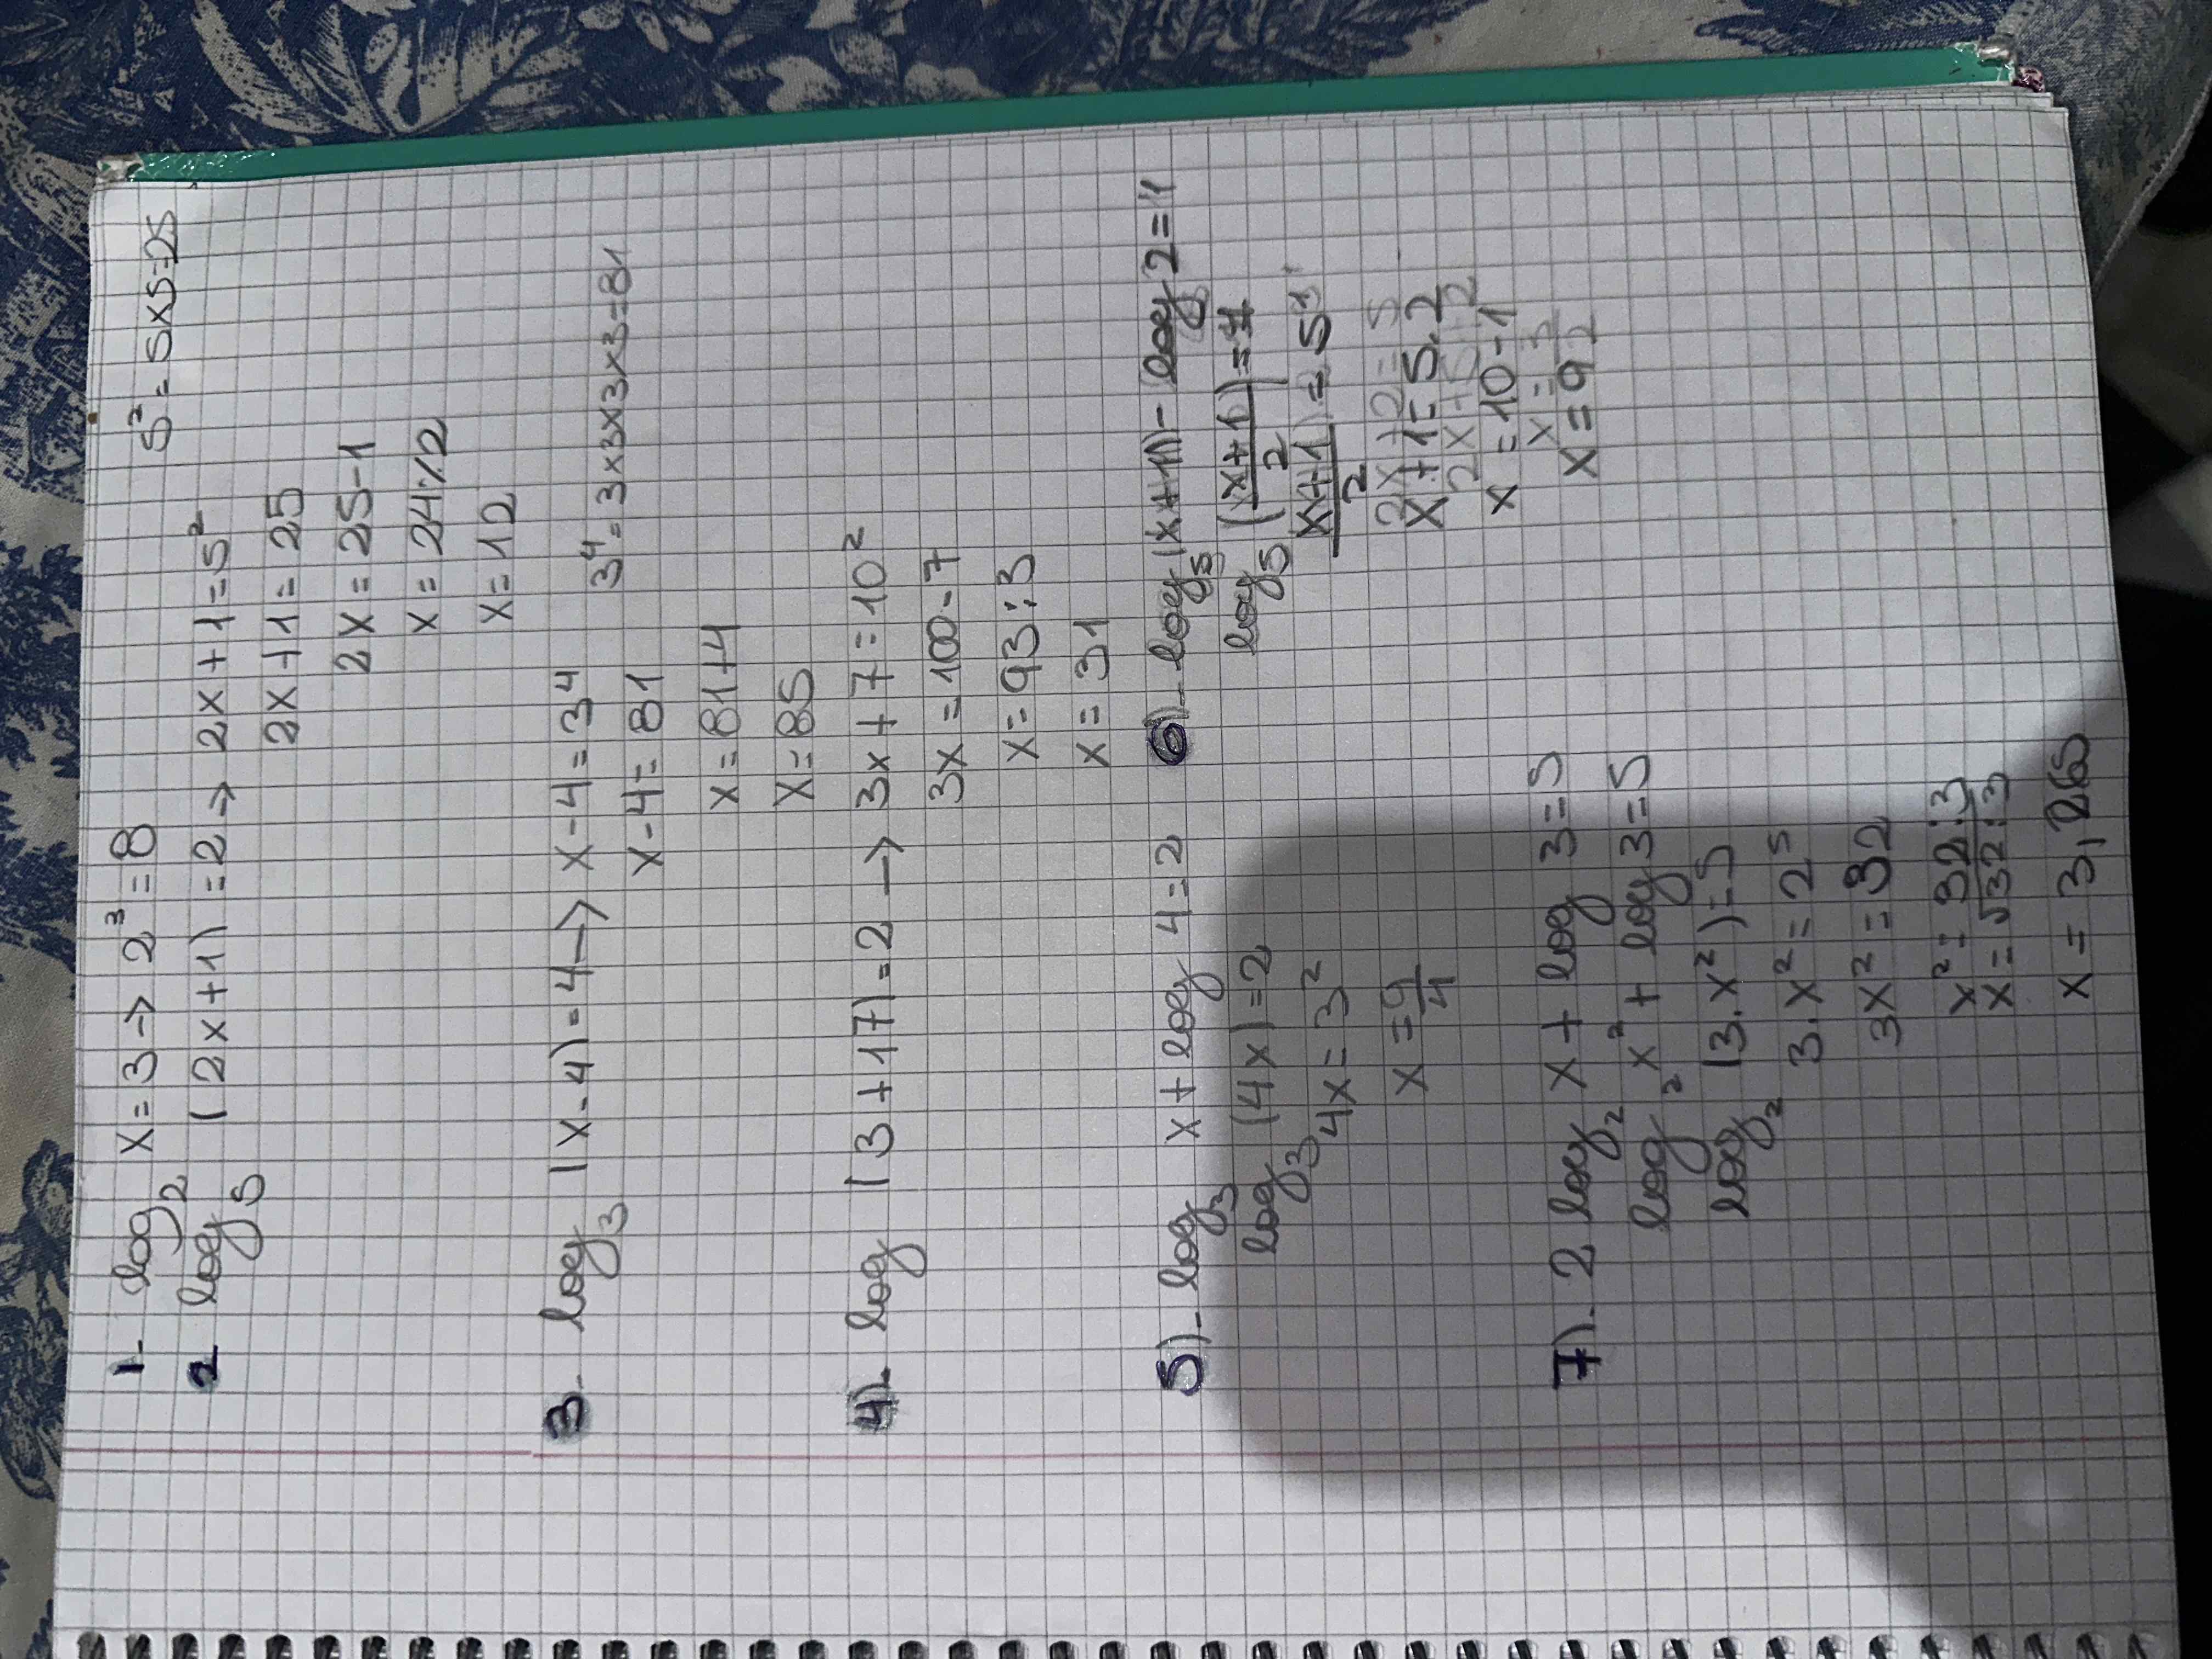 1. log₂ x=3→ 2³=8
5²=5x5=25
2 log₅ (2x+1)=2→ 2x+1=5²
2x+1=25
2x=25-1
x=24:/2
x=12
3- log₃ (x-4)=4→ x-4=3⁴
3⁴=3x3x3x3=81
x-4=81
x=81+4
x=85
4)- log (3+17)=2 → 3x+7=10²
3x=100-7
x=93:3
x=31
5)- log₃ x+log 4=2
log₃ (4x)=2
4x=3²
x=9/4
6)- log₅(x+1)- log 2=1
log₅ ((x+1)/2)=1
(x+1)/2=5¹
x+1=5.2
x=10-1
x=9
7)- 2 log₂ x+log 3=5
log₂ x²+log 3=5
log₂ (3.x²)=5
3.x²=2⁵
3x²=32
x²=32:3
x=√32:3
x=3,265